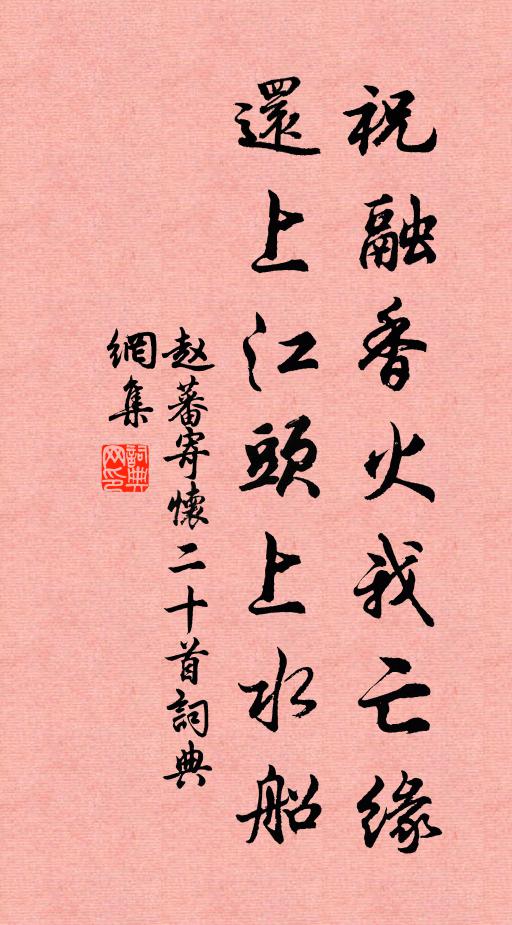 祝融香火我亡緣
還上江頭上水船
赵蕃寄懷二十首詞典
網集
詞典
网印